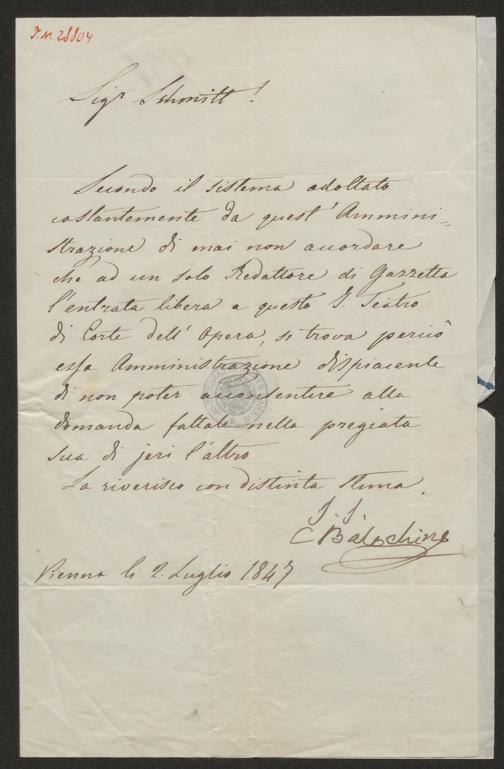 I.N. 28804
Sigr Schmitt!
Secondo il sistema adottato
costantemente da quest' Ammini=
strazione di mai non accordare
che ad un solo Redattore di Gazzetta
l'entrata libera a questo I. Teatro
di Corte dell' Opera, si trova perciò
essa Amministrazione dispiacente
di non poter acconsentire alla
domanda fattale nella pregiata
sua di jeri l'altro
La riverisco con distinta stima.
C Balochino
Vienna li 2. Luglio 1847